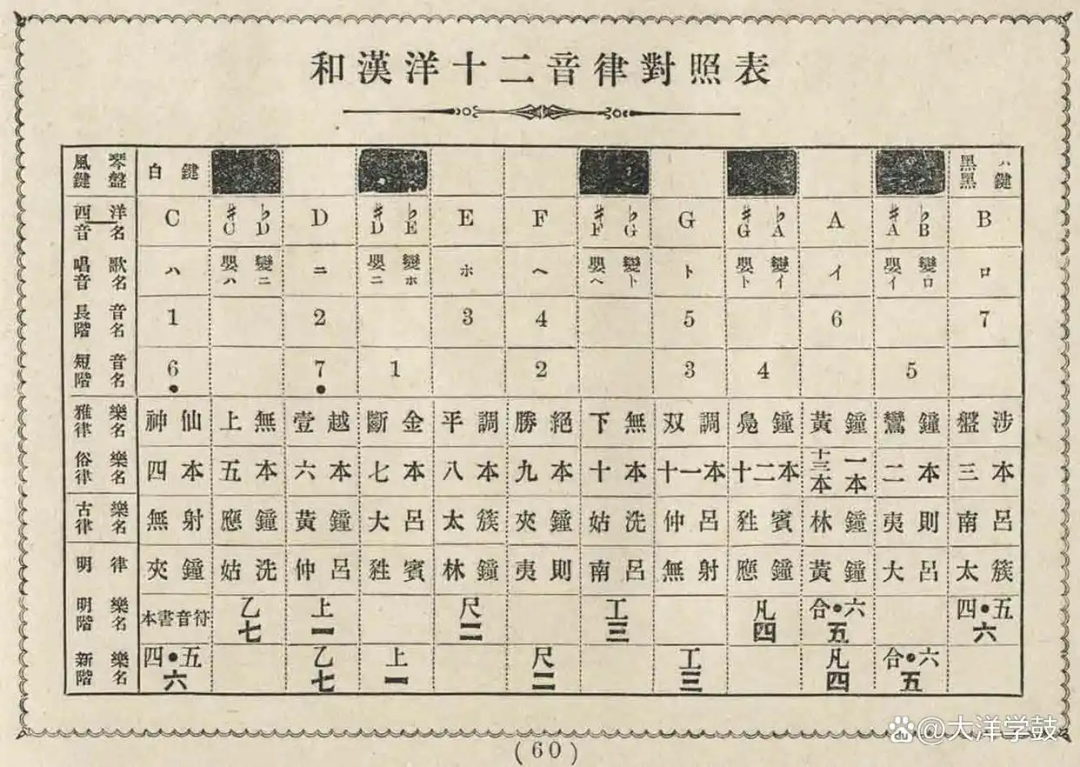 和漢洋十二音律對照表
風琴鍵盤 白鍵 黑鍵
西洋音名 C ♯C ♭D D ♯D ♭E E F ♯F ♭G G ♯G ♭A A ♯A ♭B B
唱歌音名 ハ 嬰ハ 變ニ ニ 嬰ニ 變ホ ホ ヘ 嬰ヘ 變ト ト 嬰ト 變イ イ 嬰イ 變ロ ロ
長音階名 1 2 3 4 5 6 7
短音階名 6 7 1 2 3 4 5
雅樂律名 神仙 上無 壹越 斷金 平調 勝絕 下無 双調 鳧鐘 黃鐘 鸞鐘 盤涉
俗樂律名 四本 五本 六本 七本 八本 九本 十本 十一本 十二本 十三本 一本 二本 三本
古樂律名 無射 應鐘 黃鐘 大呂 太簇 夾鐘 姑洗 仲呂 蕤賓 林鐘 夷則 南呂
明律 夾鐘 姑洗 仲呂 蕤賓 林鐘 夷則 南呂 無射 應鐘 黃鐘 大呂 太簇
明樂階名 本書音符 乙七 上一 尺二 工三 凡四 合•六五 四•五六
新樂階名 四•五六 乙七 上一 尺二 工三 凡四 合•六五
(60)
@大洋学鼓